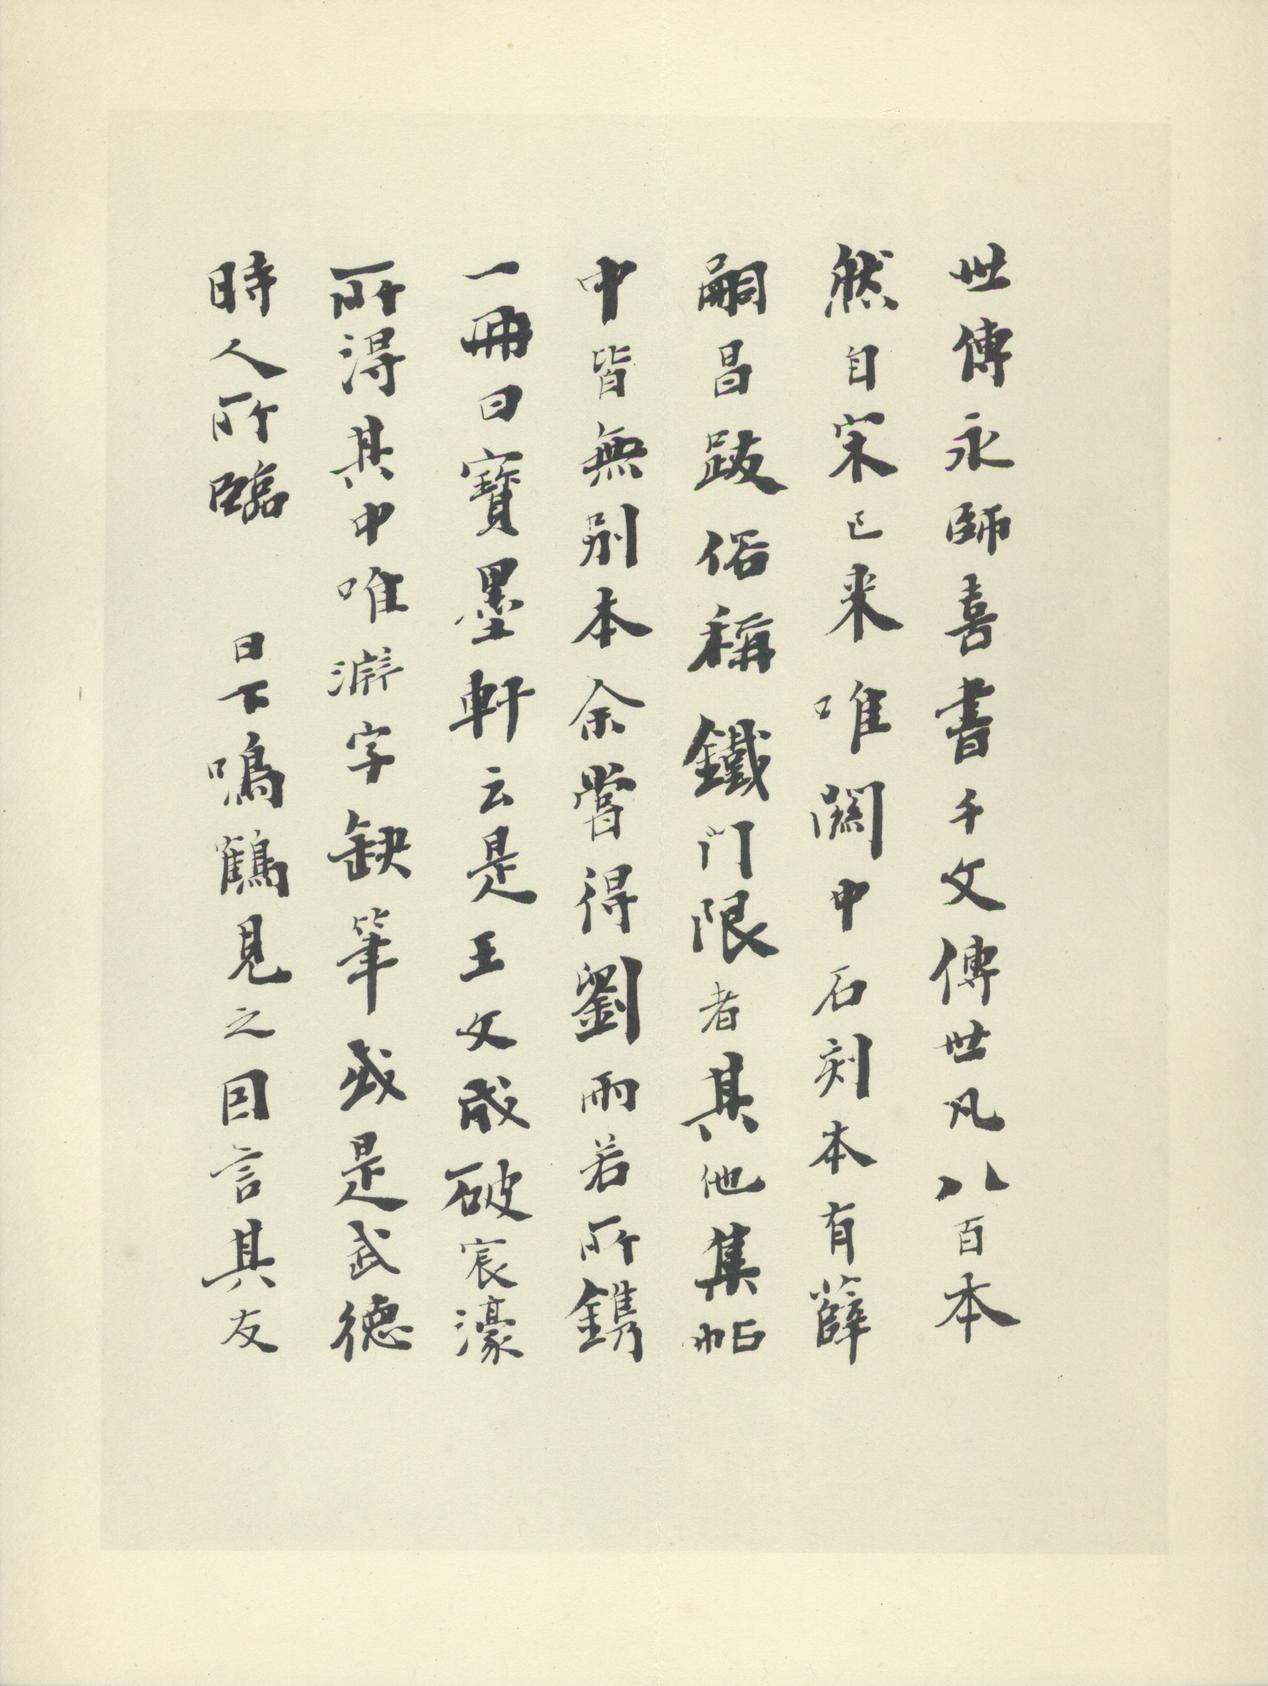 世傳永師喜書千文傳世凡八百本
然自宋已来唯關中石刻本有薛
嗣昌跋俗稱鐵門限者其他集帖
中皆無別本余嘗得劉雨若所鐫
一冊曰寶墨軒云是王文成破宸濠
所得其中唯淵字缺筆或是武德
時人所臨 日下鳴鶴見之因言其友